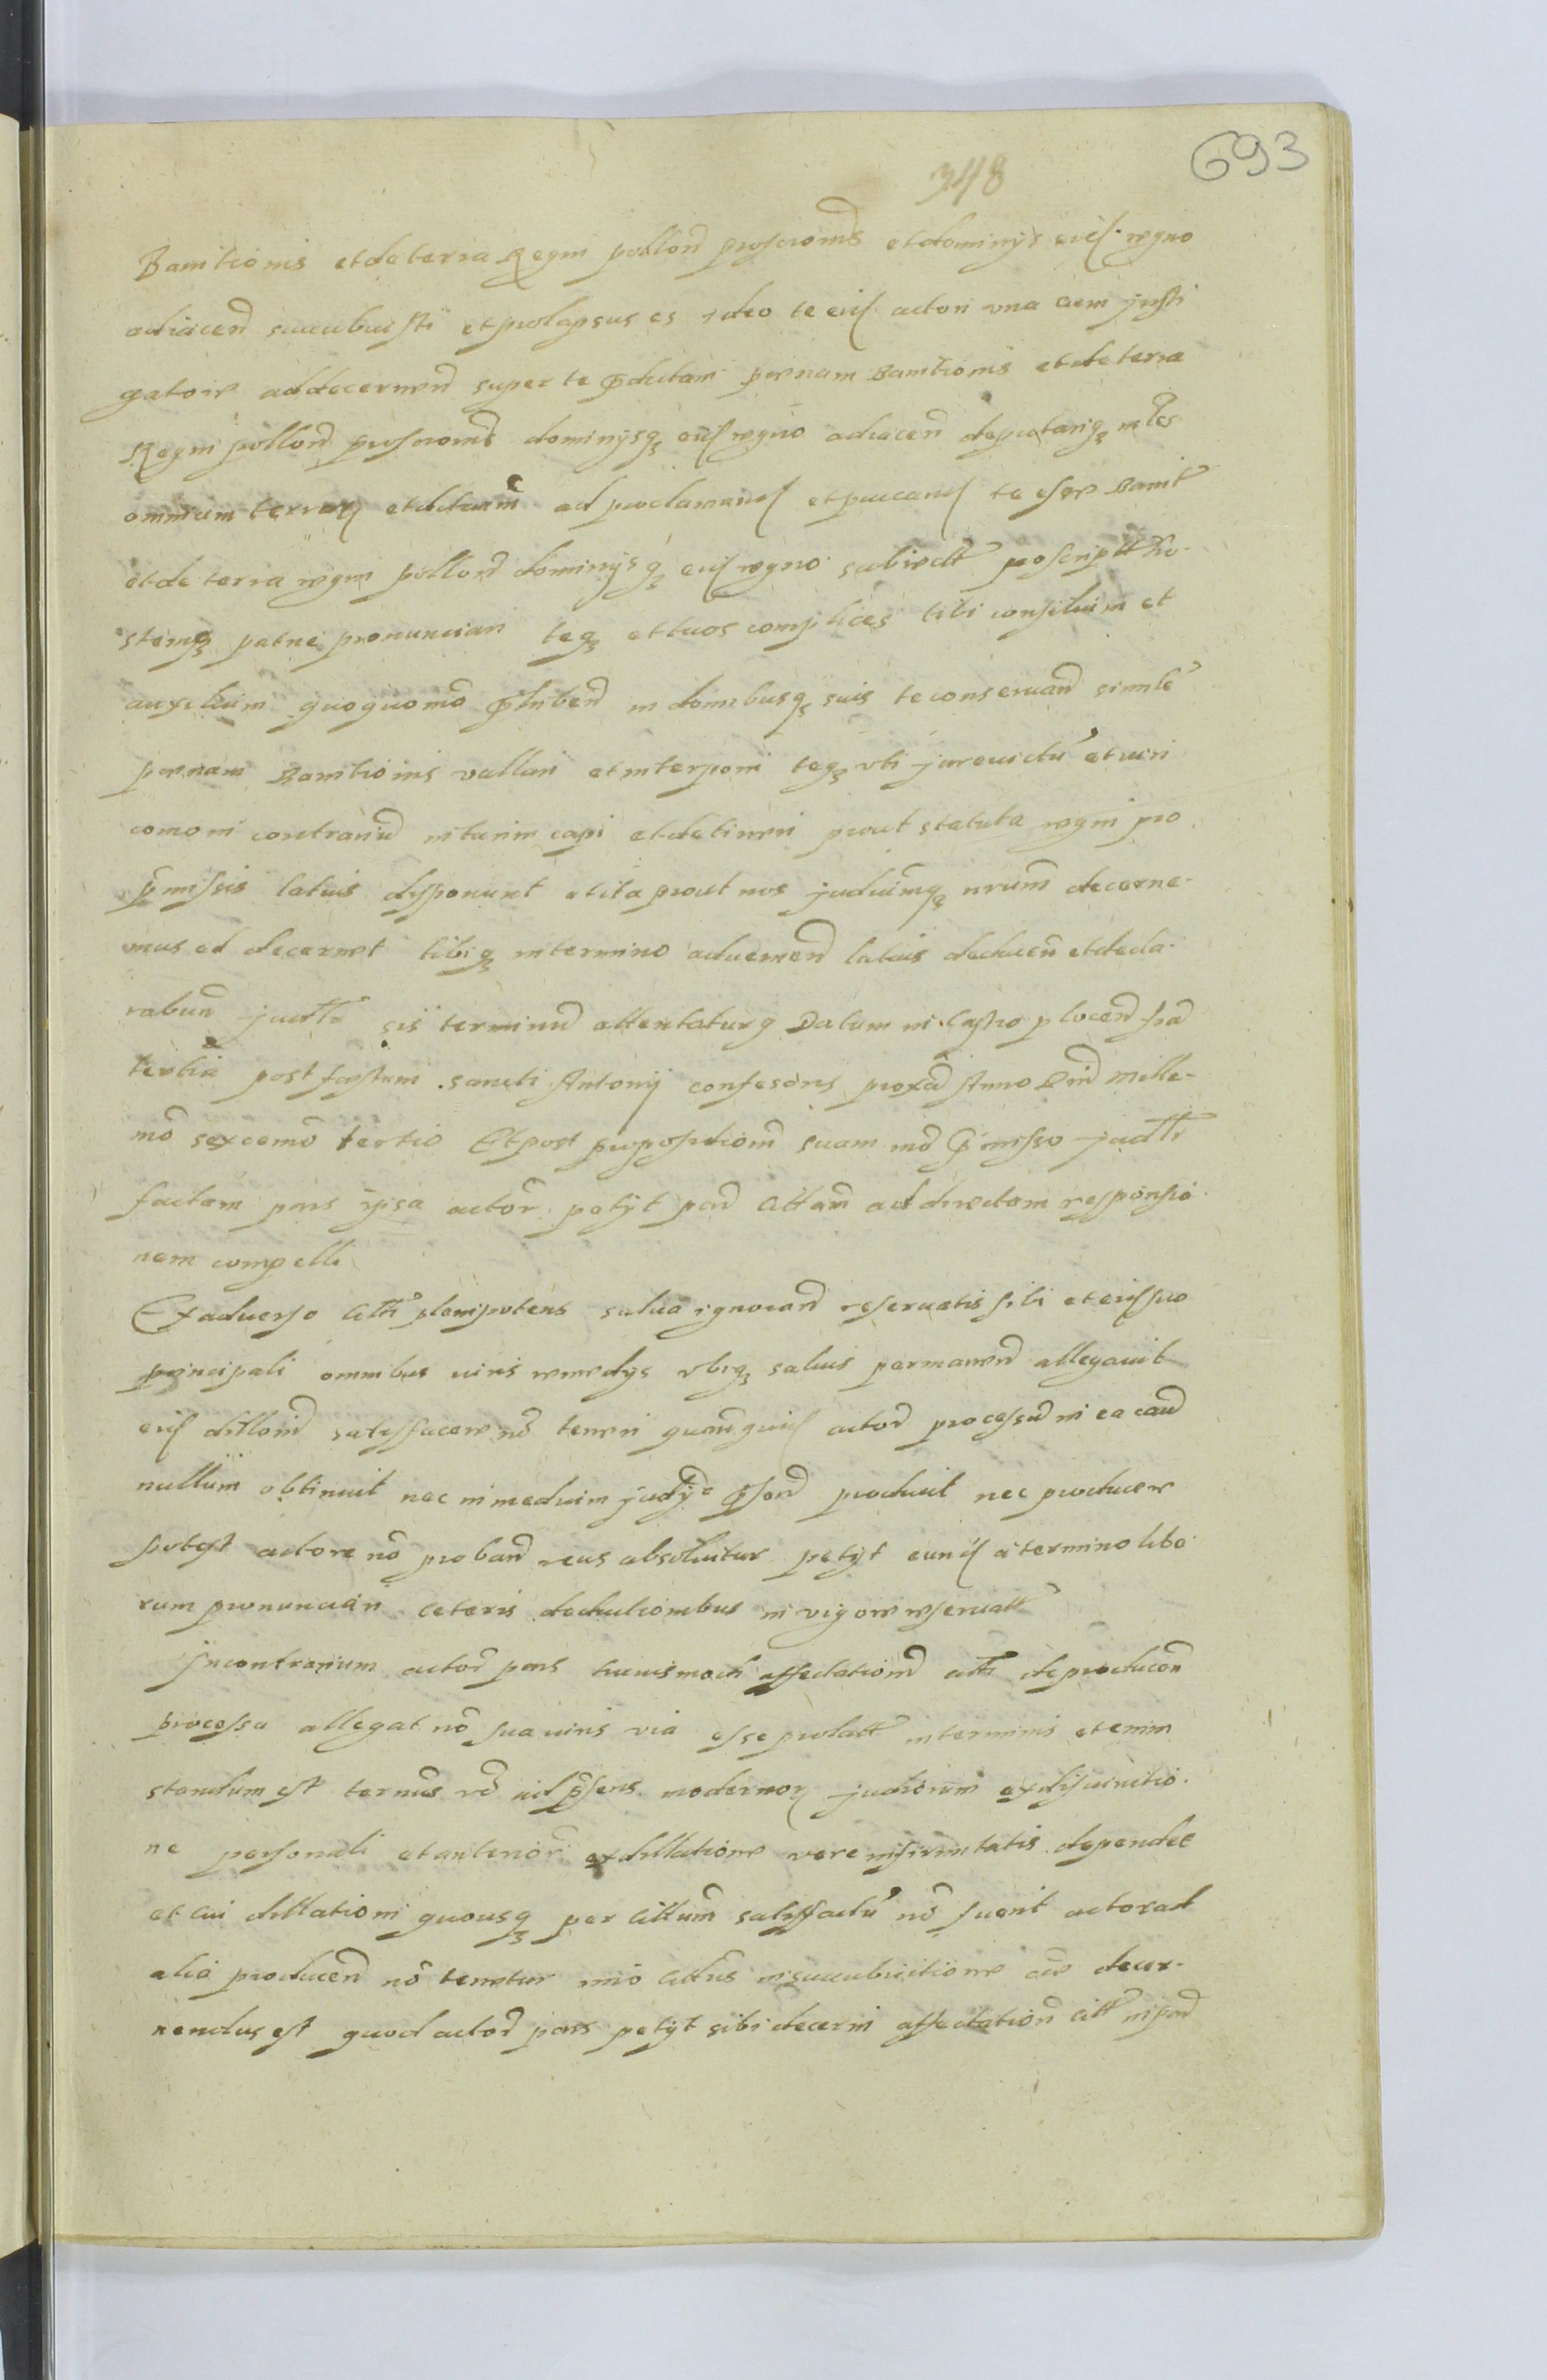 693
348
Banitionis et de terra Regni pollon proscrōnis et dominijs eius regno
adiacen succubuisti et prolapsus es ideo te eius actori una cum justi
gatore ad decernen super te p̄dictam poenam Banitionis et de terra
Regni pollon proscrōnis dominijsq eius regno adiacen deputariq mtes
omnium terrar et ad proclamand et te esse Banit
et de terra regni pollon dominijsq eius regno subiect proscriptu ho-
stemq patriae pronunciari teq et tuos complices tibi consilium et
auxilium quoquomō p̄hiben in domibusq suis te conseruan similē
poenam Banitionis vallari et interponi teq uti jureuictū et iuri
comoni contrariu capi et detineri prout statuta regni pro
p̄missis latius disponunt et ita prout nos judiciumq nrum decerne-
mus ed decernet tibiq in termino aduenien latius deducen et decla-
rabun judtr sis terminu attentaturq Datum in Castro plocen fra
tertia post festum sancti Antonij confesoris proxa Anno Dni mille-
mō sexcemō tertio Et post propositiōm suam mō p̄misso judtr
factam pars ipsa actor petijt par citam ad directam responsio-
nem compelli
Ex aduerso citi plenipotens salua ignoran reseruatis sibi et eius suo
principali omnibus iuris remedijs ubiq saluis permanen allegauit
eius dillōni satisfacere nō teneri actor processu in ea cau
nullum obtinuit nec in medium judij p̄sen produxit nec producere
potest actore nō proban reus absoluitur petijt eund a termino libe-
rum pronunciari ceteris deductionibus in vigore reseruatt
In contrarium actor pars huiusmodi affectationē citi de producen
processu allegat nō sua iuris via esse prolatt in terminis etenim
standum est termūs vō ad p̄sens modernor judiciorum ex discuntio-
ne personali et anterior ex dillatione vere infirmitatis dependet
et cui dillationi quousq per citum satisfactū nō fuerit actor ad
alia producen nō tenetur imo citus in succubuitione decer-
nendus est quod actor pars petijt sibi decerni affectation citi